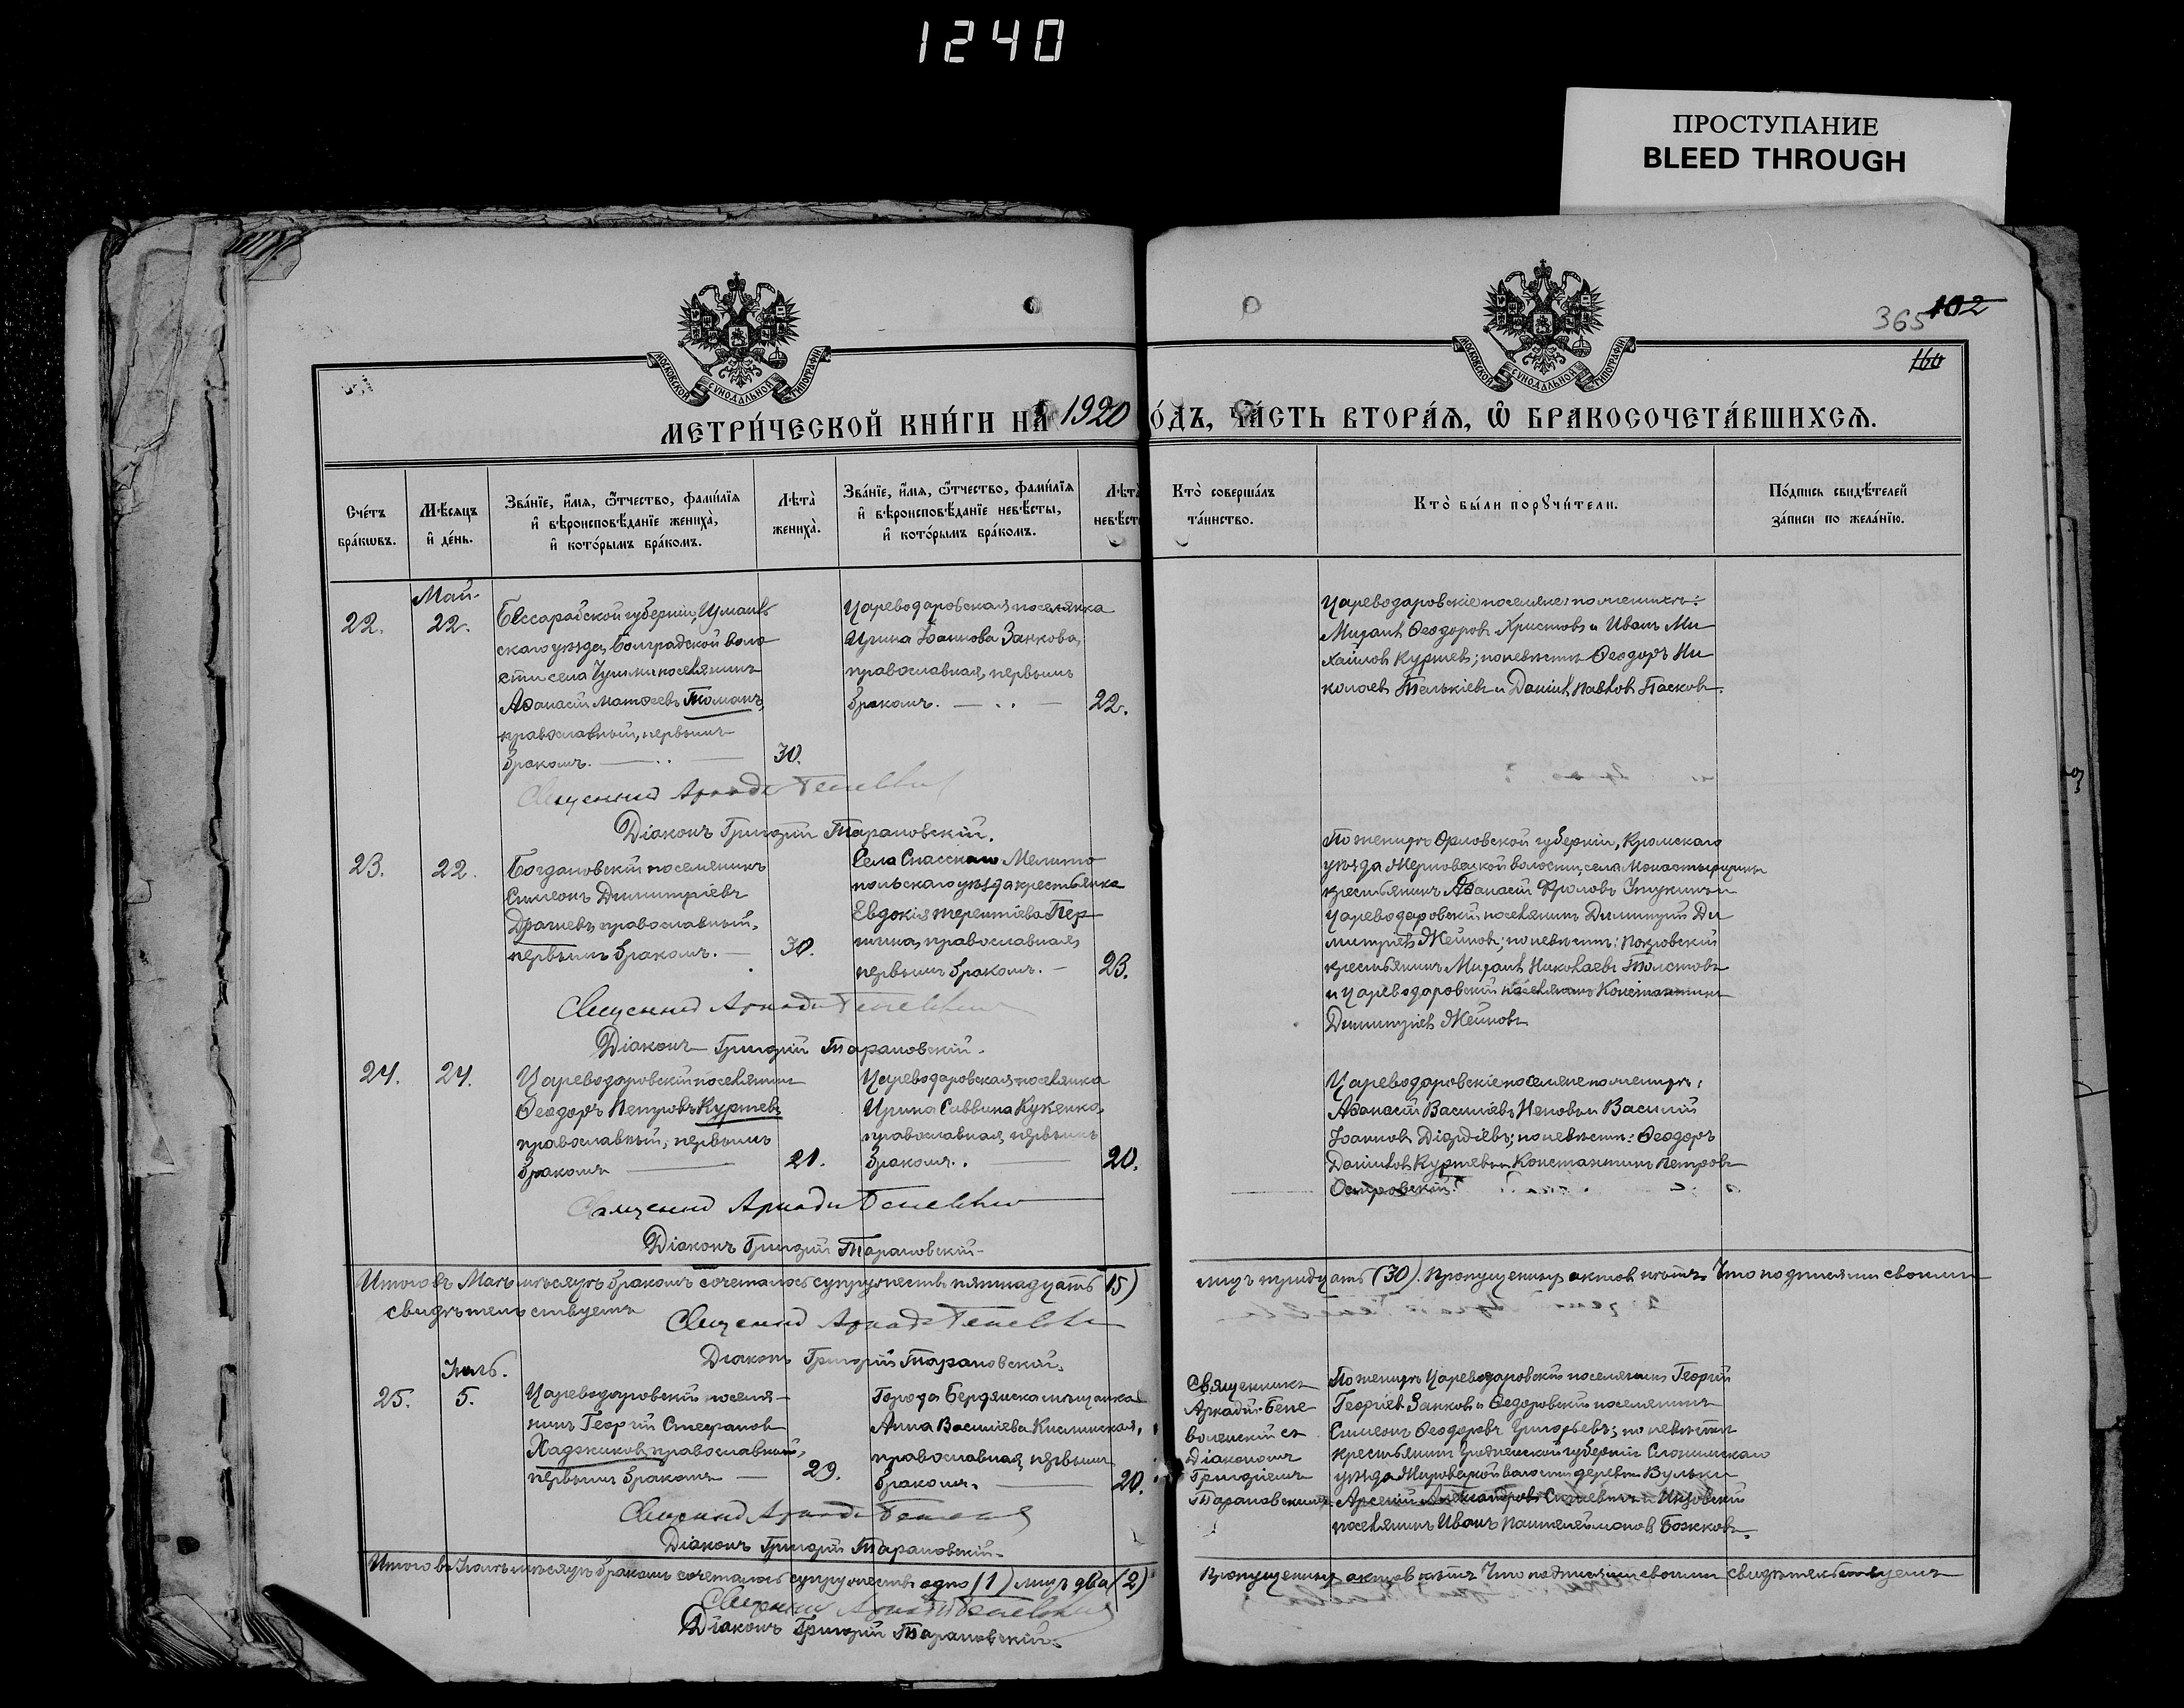 1240
ПРОСТУПАНИЕ
BLEED THROUGH
365 102
160
МОСКОВСКОЙ СѴНОДАЛЬНОЙ ТИПОГРАФІИ
МОСКОВСКОЙ СѴНОДАЛЬНОЙ ТИПОГРАФІИ
МЕТРИ́ЧЕСКОЙ КНИ́ГИ НА 1920 О́ДЪ, ЧА́СТЬ ВТОРА́Я, Ѡ БРАКОСОЧЕТА́ВШИХСЯ.
Сче́тъ бра́кѡвъ.
Мѣ́сяцъ и де́нь.
Зва́нїе, и҆́мя, ѻ҆́тчество, фами́лїя
и҆ вѣроисповѣ́данїе жениха̀,
и҆ кото́рымъ бра́комъ.
Лѣта̀ жениха̀.
Зва́нїе, и҆́мя, ѻ҆́тчество, фами́лїя
и҆ вѣроисповѣ́данїе невѣ́сты,
и҆ кото́рымъ бра́комъ.
Лѣта̀ невѣ́ст
Кто̀ соверша́лъ та́инство.
Кто̀ бы́ли порꙋчи́тели.
По́дпись свидѣ́телей за́писи по жела́нїю.
Май.
22.
22.
Бессарабской губерніи, Измаиль
скаго уѣзда, Болградской воло
сти села поселянинъ
Аѳанасій Матѳеевъ Томанъ,
православный, первымъ
бракомъ.
30.
Цареводаровская поселянка
Ирина Іоаннова Занкова,
православная, первымъ
бракомъ.
22.
Цареводаровскіе поселяне: по женихѣ:
Михаилъ Ѳеодоровъ Христовъ и Иванъ Ми
хайловъ Куртевъ; по невѣстѣ Ѳеодоръ Ни
колаевъ и Даніилъ Павловъ Пасковъ.
Священникъ Аркадій
Діаконъ Григорій Тарановскій.
23.
22.
Богдановскій поселянинъ
Симеонъ Димитріевъ
Драгневъ, православный,
первымъ бракомъ.
30.
Села Спасскаго Мелито
польскаго уѣзда крестьянка
Евдокія Терентіева
православная,
первымъ бракомъ.
23.
По женихѣ Орловской губерніи, Кромскаго
уѣзда волости, села
крестьянинъ Аѳанасій Фроловъ и
Цареводаровскій поселянинъ Димитрій Ди
митріевъ Жейновъ; по невѣстѣ: Покровскій
крестьянинъ Михаилъ Николаевъ Толстовъ
и Цареводаровскій поселянинъ Константинъ
Димитріевъ Жейновъ
Священникъ Аркадій
Діаконъ Григорій Тарановскій.
24.
24.
Цареводаровскій поселянинъ
Ѳеодоръ Петровъ Куртевъ
православный, первымъ
бракомъ
21.
Цареводаровская поселянка
Ирина Саввина Кукенко,
православная, первымъ
бракомъ.
20.
Цареводаровскіе поселяне по женихѣ:
Аѳанасій Василіевъ Неновъ и Василій
Іоанновъ Діордіевъ; по невѣстѣ: Ѳеодоръ
Даніиловъ Куртевъ и Константинъ Петровъ
Островскій.
Священникъ Аркадій
Діаконъ Григорій Тарановскій.
Итого въ Маѣ мѣсяцѣ бракомъ сочеталось супружествъ пятнадцать (15) лицъ тридцать (30). Пропущенныхъ актовъ нѣтъ. Что подписями своими
свидѣтельствуемъ
Священникъ Аркадій
Діаконъ Григорій Тарановскій.
25.
5.
Цареводаровскій поселя-
нинъ Георгій Стефановъ
Хаджиковъ, православный,
первымъ бракомъ
29.
Города Бердянска мѣщанка
Анна Василіева Кислинская,
православная, первымъ
бракомъ.
20.
Священникъ
Аркадій Бене
воленскій съ
Діакономъ
Григоріемъ
Тарановскимъ
По женихѣ Цареводаровскій поселянинъ Георгій
Георгіевъ Занковъ и Ѳедоровскій поселянинъ
Симеонъ Ѳеодоровъ Григорьевъ; по невѣстѣ
крестьянинъ Гродненской губерніи Слонимскаго
уѣзда Жировецкой волости деревни Вульки
Арсеній Александровъ и Инзовскій
поселянинъ Иванъ Пантелеймоновъ Божковъ.
Священникъ Аркадій
Діаконъ Григорій Тарановскій.
Итого въ мѣсяцѣ бракомъ сочеталось супружествъ одно (1) лицъ два (2) Пропущенныхъ актовъ нѣтъ Что подписями своими свидѣтельствуемъ
Священникъ Аркадій
Діаконъ Григорій Тарановскій.